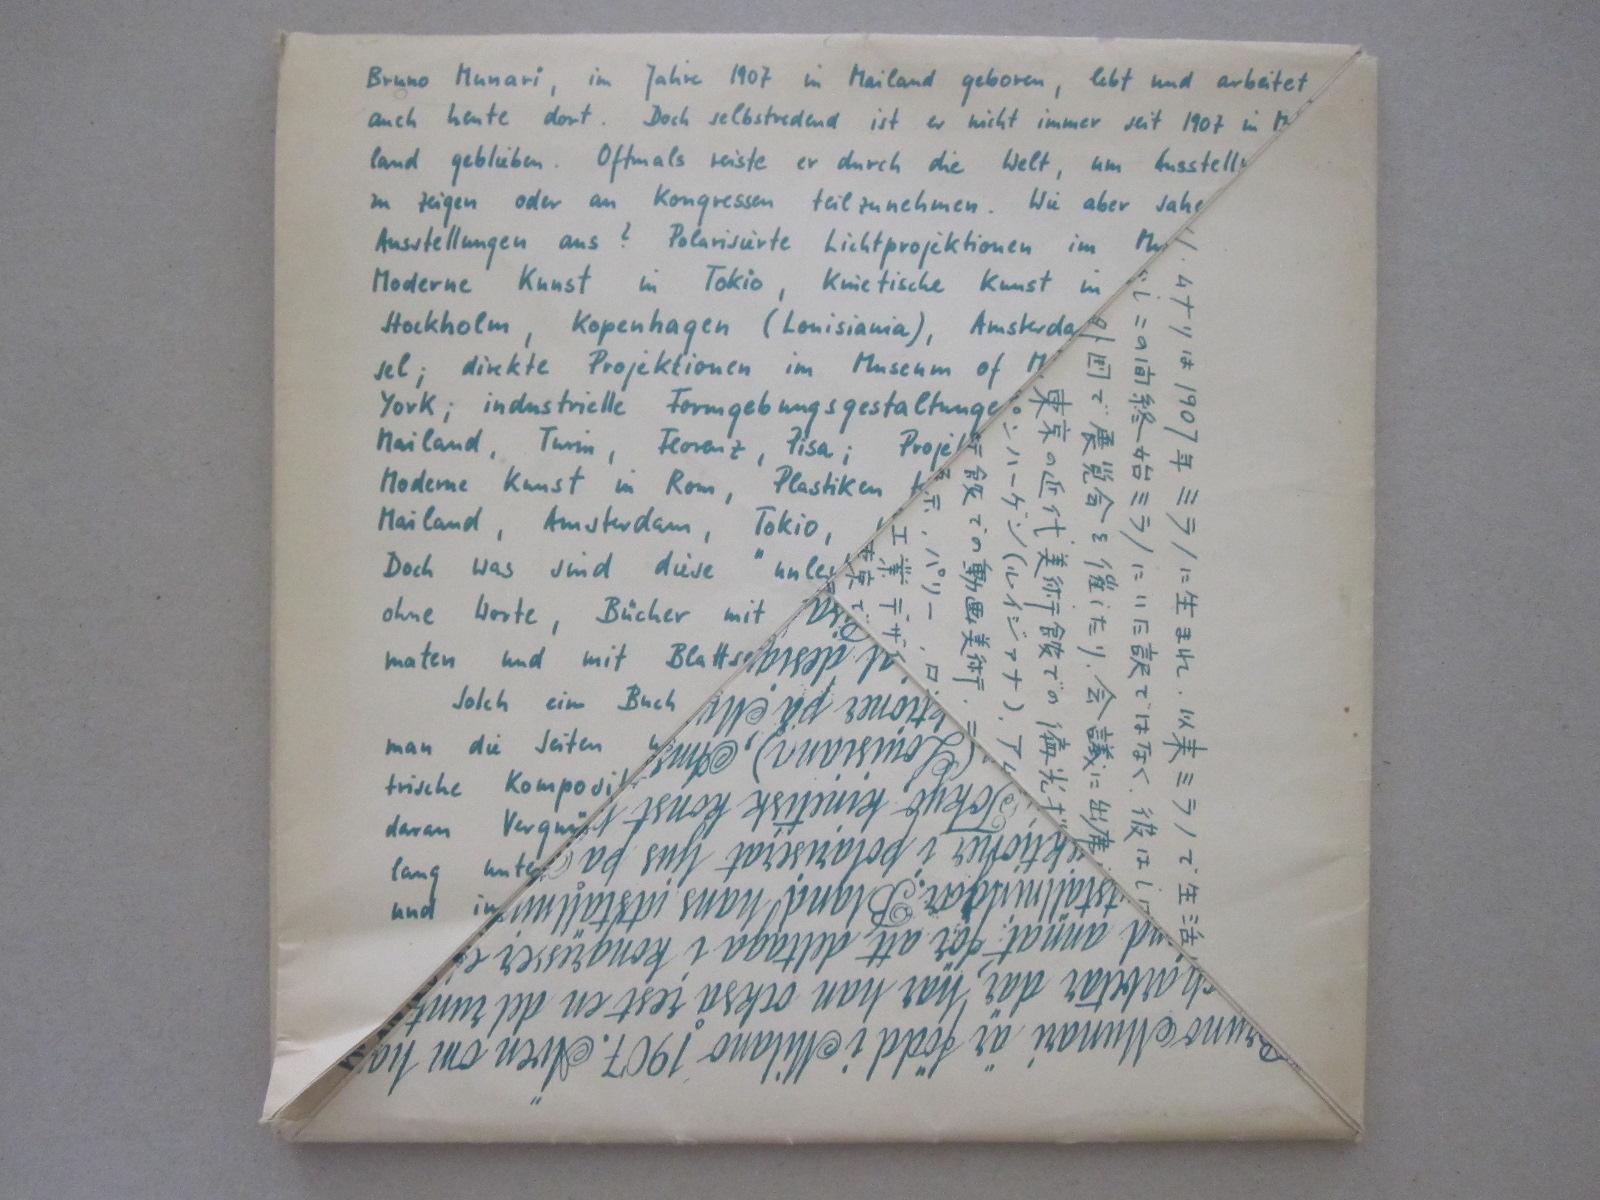 Bruno Munari, im Jahre 1907 in Mailand geboren, lebt und arbeitet
auch heute dort. Doch selbstredend ist er nicht immer seit 1907 in M
land geblieben. Oftmals reiste er durch die Welt, um Ausstellu
zu zeigen oder an Kongressen teilzunehmen. Wie aber sahe
Ausstellungen aus? Polarisierte Lichtprojektionen im Mu
Moderne Kunst in Tokio, Kinetische Kunst in
Stockholm, Kopenhagen (Louisiania), Amsterda
sel; direkte Projektionen im Museum of M
York; industrielle Formgebungsgestaltunge
Mailand, Turin, Florenz, Pisa; Projek
Moderne Kunst in Rom, Plastiken
Mailand, Amsterdam, Tokio,
Doch was sind diese "unles
ohne Worte, Bücher mit
maten und mit Blattse
Solch ein Buch
man die Seiten
trische Komposit
daran Vergnü
lang unte
und in
ムナリは1907年ミラノに生まれ、以来ミラノで生活
しこの間終始ミラノにいた訳ではなく、彼はし
外国で展覧会を催したり、会議に出席
東京の近代美術館での偏光
ンハーゲン(ルイジアナ)、アム
術館での動画美術、ニ
展示、パリー、ロ
工業デザ
東京で
runo Munari är född i Milano 1907. Även om ha
ch arbetar där, har han också rest en del runt
nd annat för att deltaga i kongresser
tställningar. Bland hans utställnin
ektioner i polariserat ljus på
Tokyo kinetisk konst
(Louisiana), Ams
ktioner på Mu
al design
Pisa